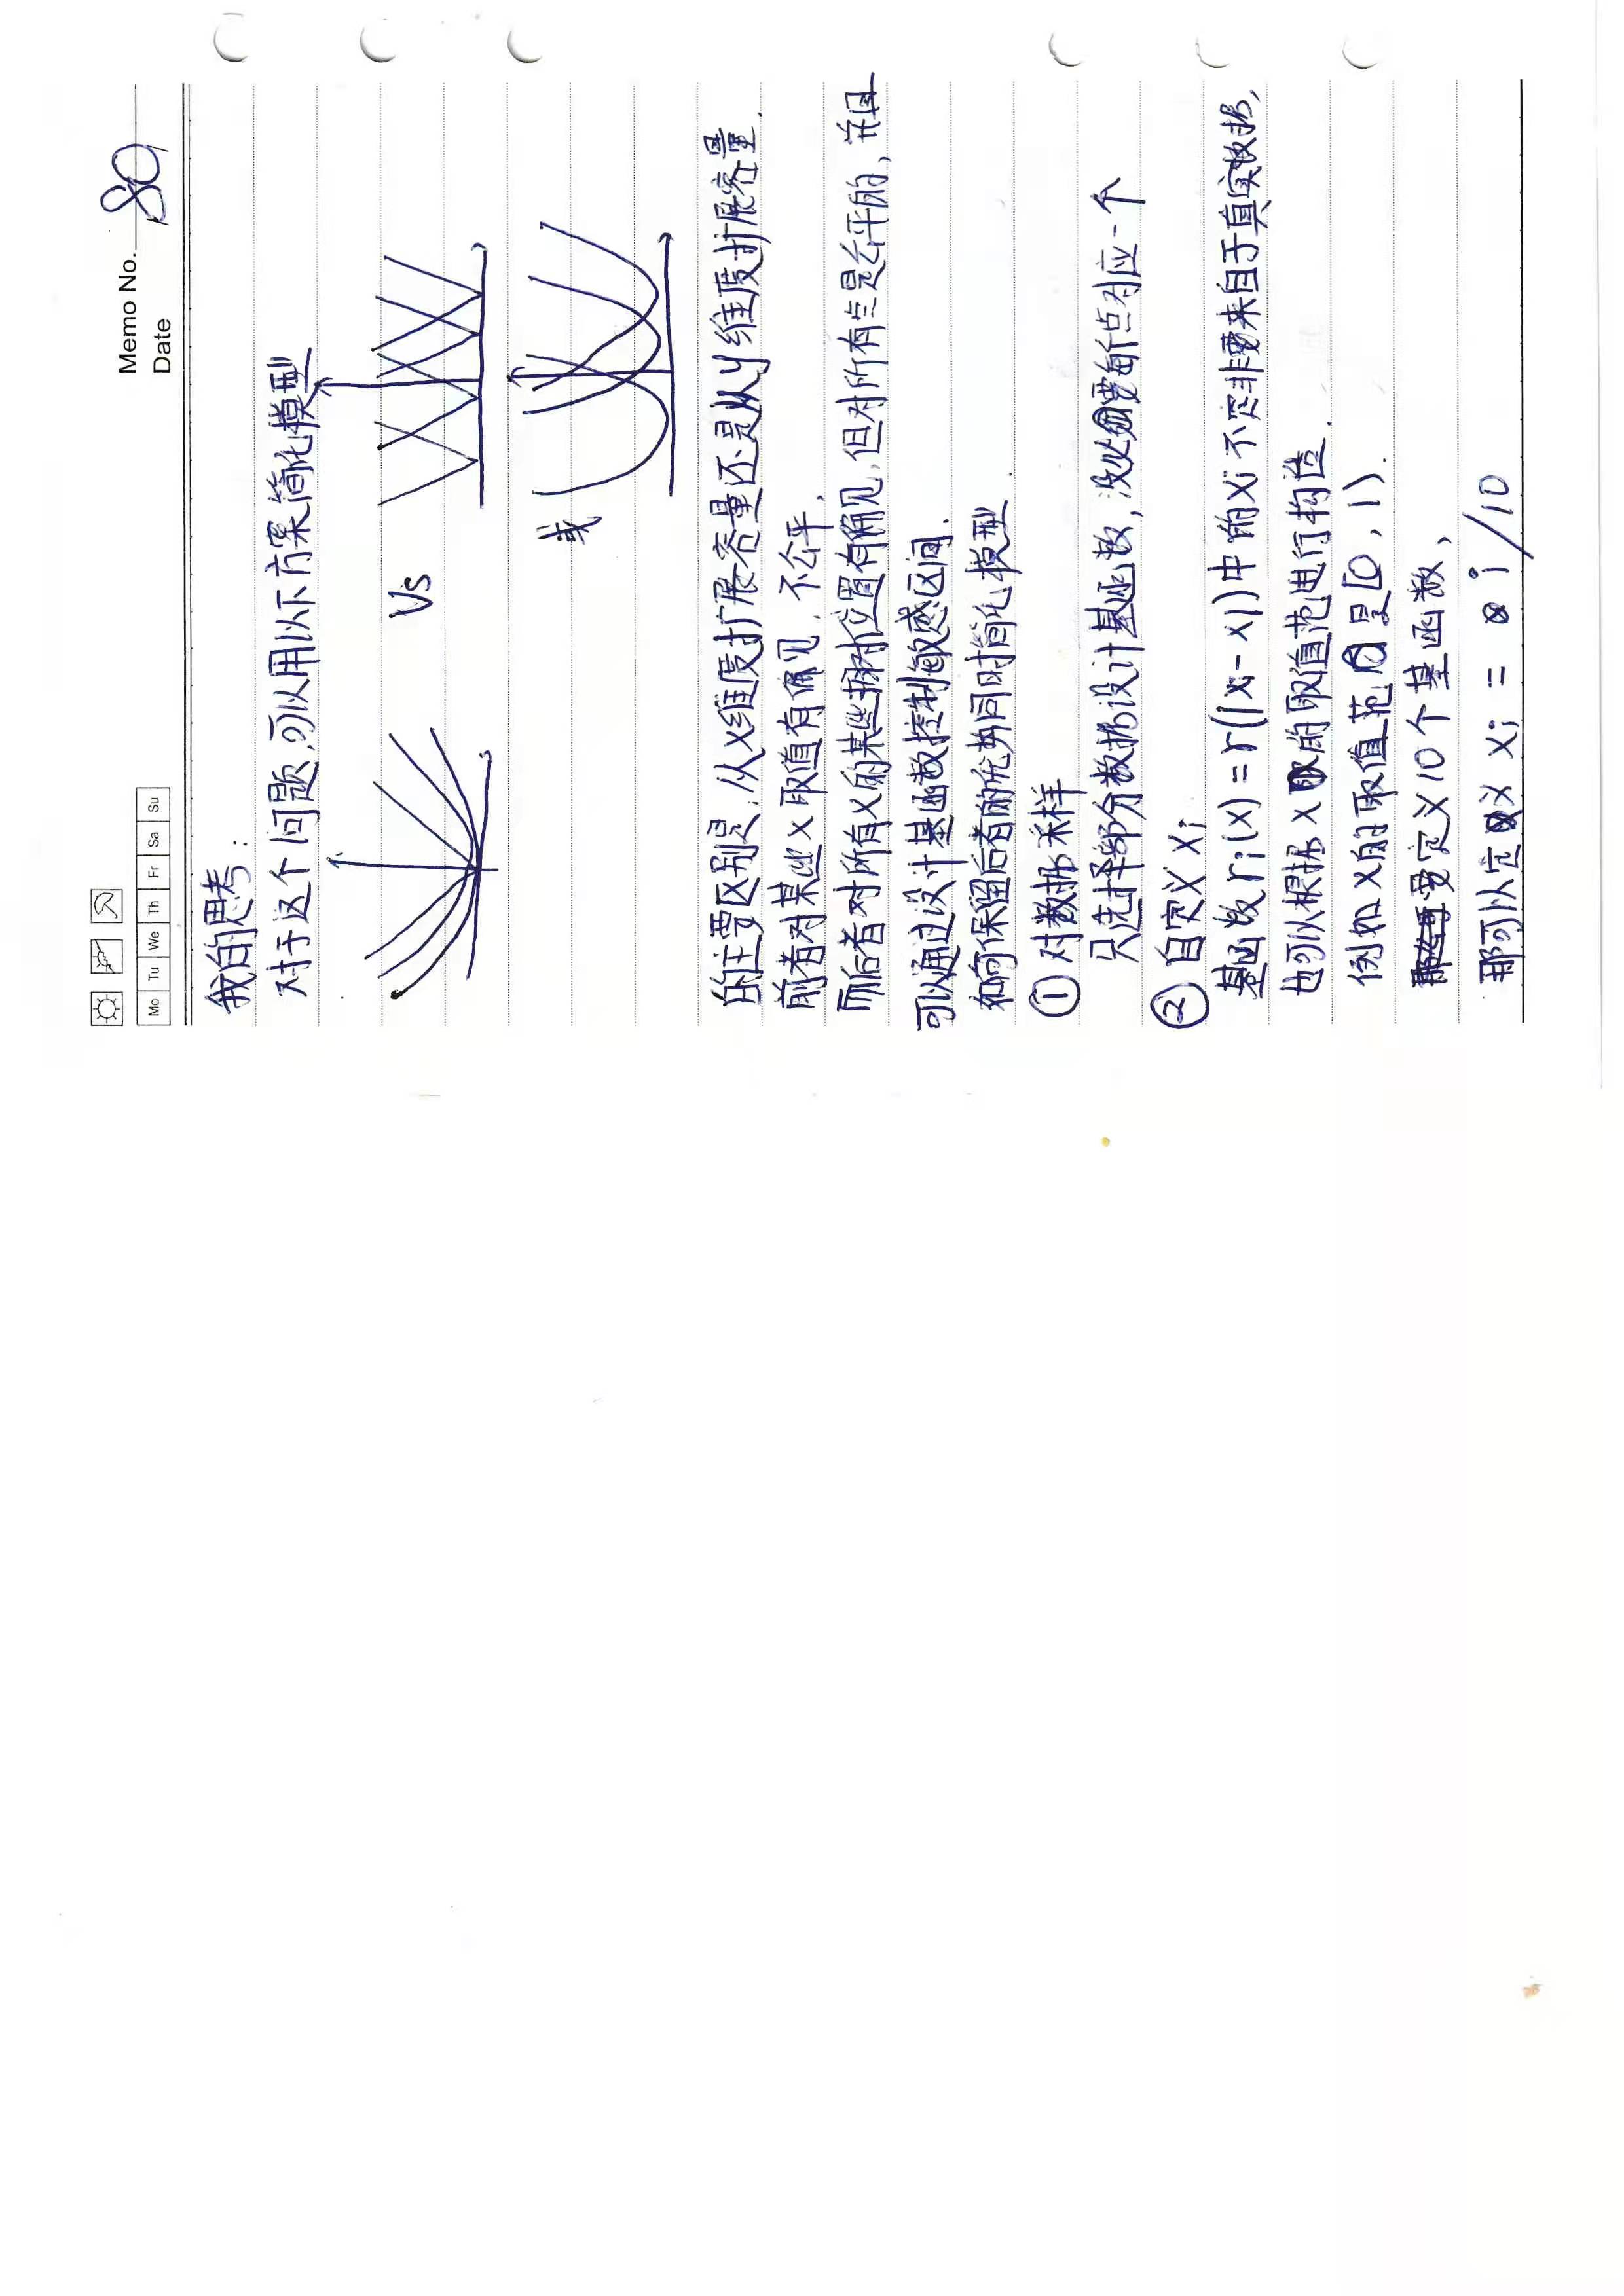 Mo Tu We Th Fr Sa Su
Memo No. 80
Date
我的思考：
对于这个问题,可以用以下方案简化模型
Vs
或
的主要区别是,从x维度扩展容量还是从y维度扩展容量.
前者对某些x取值有偏见,不公平,
而后者对所有x的某些相对位置有偏见,但对所有点是公平的,并且
可以通过设计基函数控制敏感区间.
如何保留后者的优势同时简化模型.
① 对数据采样
只选择部分数据设计基函数,没必要每个点对应一个
② 自定义 xi
基函数 ri(x) = r(|xi - x|) 中的 xi 不定非要来自于真实数据,
也可以根据 x 的取值范进行构造.
例如 x的取值范围是[0, 1).
要定义10个基函数,
那可以定义 xi = i/10